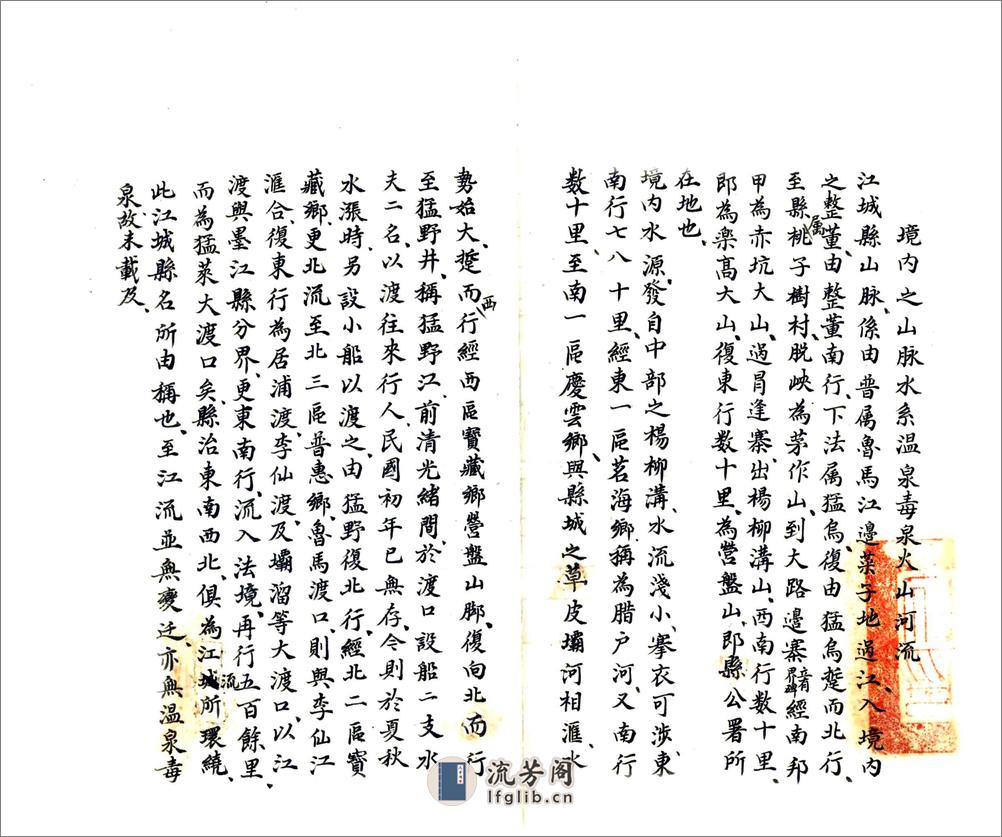 境内之山脉水系温泉毒泉火山河流
江城縣山脉、係由普属魯馬江邊菜子地過江、入境内
之整董、由整董南行、下法属猛烏、復由猛烏蹔而北行、
至縣属桃子樹村、脱峽為茅作山、到大路邊寨立有界碑經南邦
甲為赤坑大山、過冐逢寨、出楊柳溝山、西南行数十里、
即為栾髙大山、復東行数十里、為營盤山、即縣公署所
在地也、
境内水源、發自中部之楊柳溝、水流淺小、搴衣可涉、東
南行七八十里、經東一區茗海鄉、稱為腊户河、又南行
数十里、至南一區慶雲鄉、與縣城之草皮壩河相滙、水
勢始大、蹔而西行、經西區寳藏鄉營盤山脚、復向北而行
至猛野井、稱猛野江、前清光緒間、於渡口設船二支、水
夫二名、以渡往來行人、民國初年已無存、今則於夏秋
水漲時、另設小船以渡之、由猛野復北行、經北二區寳
藏鄉、更北流至北三區普惠鄉、魯馬渡口、則與李仙江
滙合、復東行為居浦渡、李仙渡、及壩溜等大渡口、以江
渡與墨江縣分界、更東南行、流入法境、再行五百餘里、
而為猛萊大渡口矣、縣治東南西北、俱為江流城所環繞、
此江城縣名所由稱也、至江流並無變迁、亦無温泉毒
泉、故未載及、
流芳阁
lfglib.cn